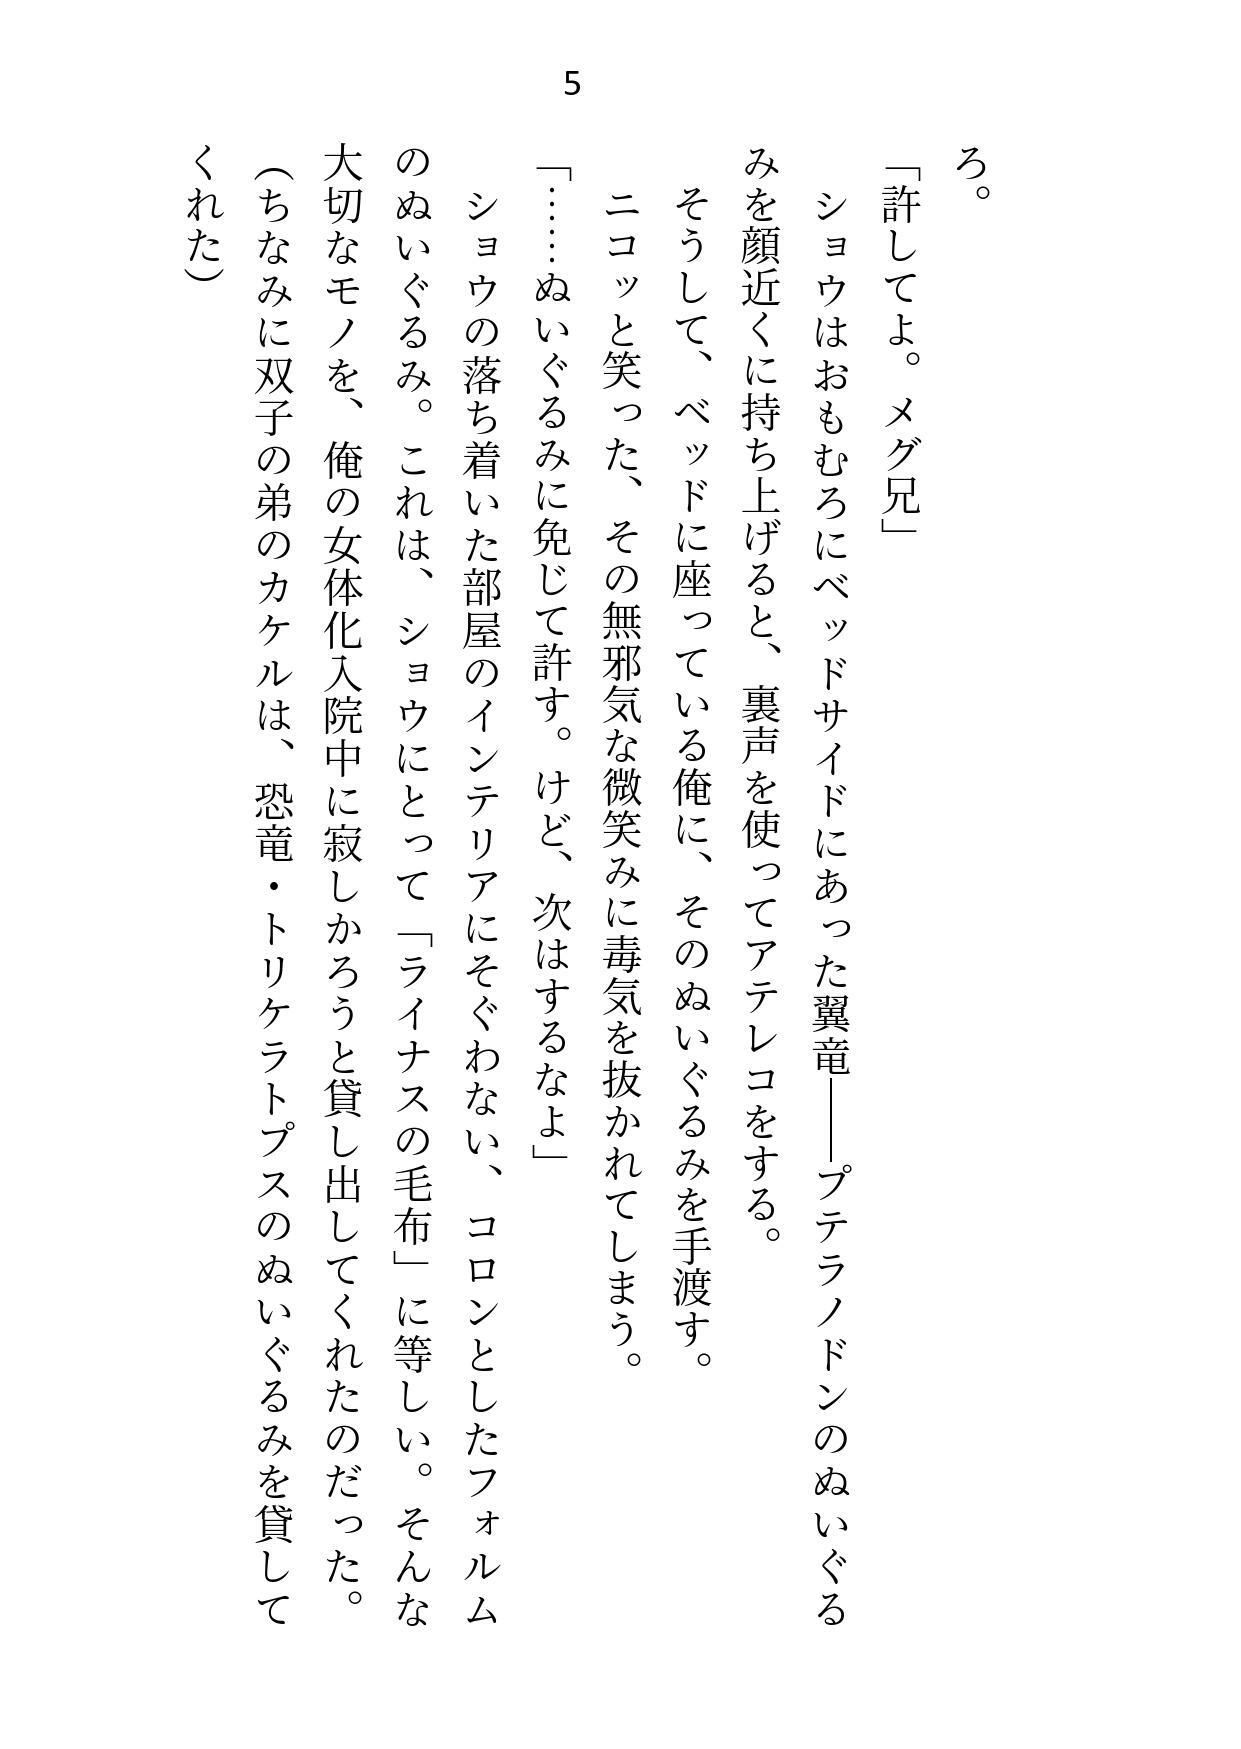 5
ろ。
「許してよ。メグ兄」
　ショウはおもむろにベッドサイドにあった翼竜――プテラノドンのぬいぐる
みを顔近くに持ち上げると、裏声を使ってアテレコをする。
　そうして、ベッドに座っている俺に、そのぬいぐるみを手渡す。
　ニコッと笑った、その無邪気な微笑みに毒気を抜かれてしまう。
「……ぬいぐるみに免じて許す。けど、次はするなよ」
　ショウの落ち着いた部屋のインテリアにそぐわない、コロンとしたフォルム
のぬいぐるみ。これは、ショウにとって「ライナスの毛布」に等しい。そんな
大切なモノを、俺の女体化入院中に寂しかろうと貸し出してくれたのだった。
（ちなみに双子の弟のカケルは、恐竜・トリケラトプスのぬいぐるみを貸して
くれた）